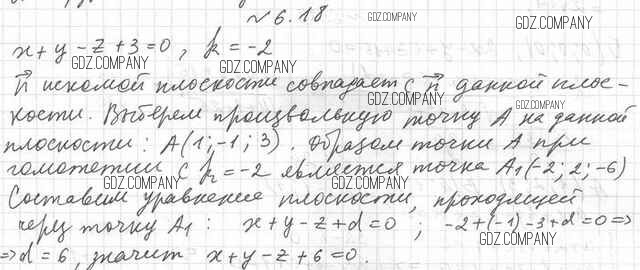 №6.18
x+y-z+3=0, k=-2
n⃗ искомой плоскости совпадает с n⃗ данной плос-
кости. Выберем произвольную точку A на данной
плоскости: A(1;-1;3). Образом точки A при
гомотетии с k=-2 является точка A₁(-2;2;-6)
Составим уравнение плоскости, проходящей
через точку A₁: x+y-z+d=0; -2+(-1)-3+d=0 =>
=> d=6, значит x+y-z+6=0.
GDZ.COMPANY
GDZ.COMPANY
GDZ.COMPANY
GDZ.COMPANY
GDZ.COMPANY
GDZ.COMPANY
GDZ.COMPANY
GDZ.COMPANY
GDZ.COMPANY
GDZ.COMPANY